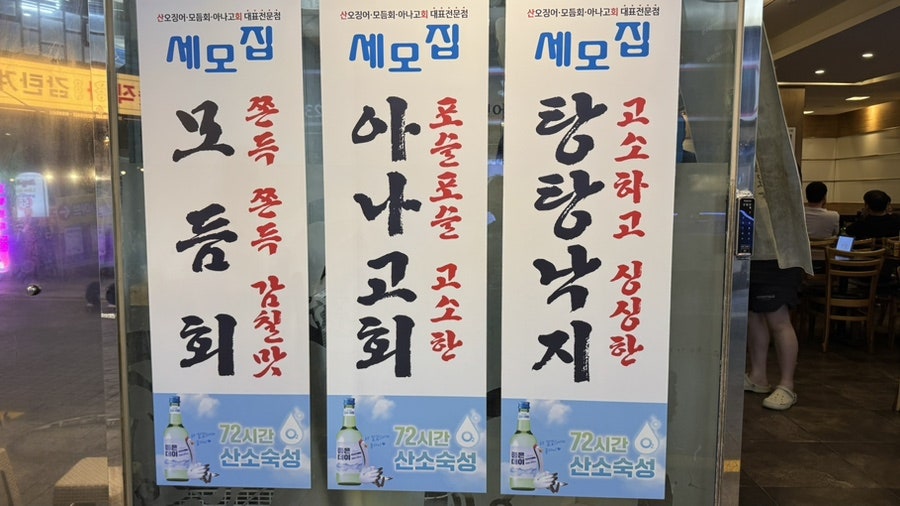 산오징어·모듬회·아나고회 대표전문점
세모집
모듬회
쫀득쫀득 감칠맛
72시간
산소숙성
산오징어·모듬회·아나고회 대표전문점
세모집
아나고회
포슬포슬 고소한
72시간
산소숙성
산오징어·모듬회·아나고회 대표전문점
세모집
탕탕낙지
고소하고 싱싱한
72시간
산소숙성